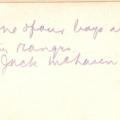 ne of our boys a
in rangrs.
Jack McHaven